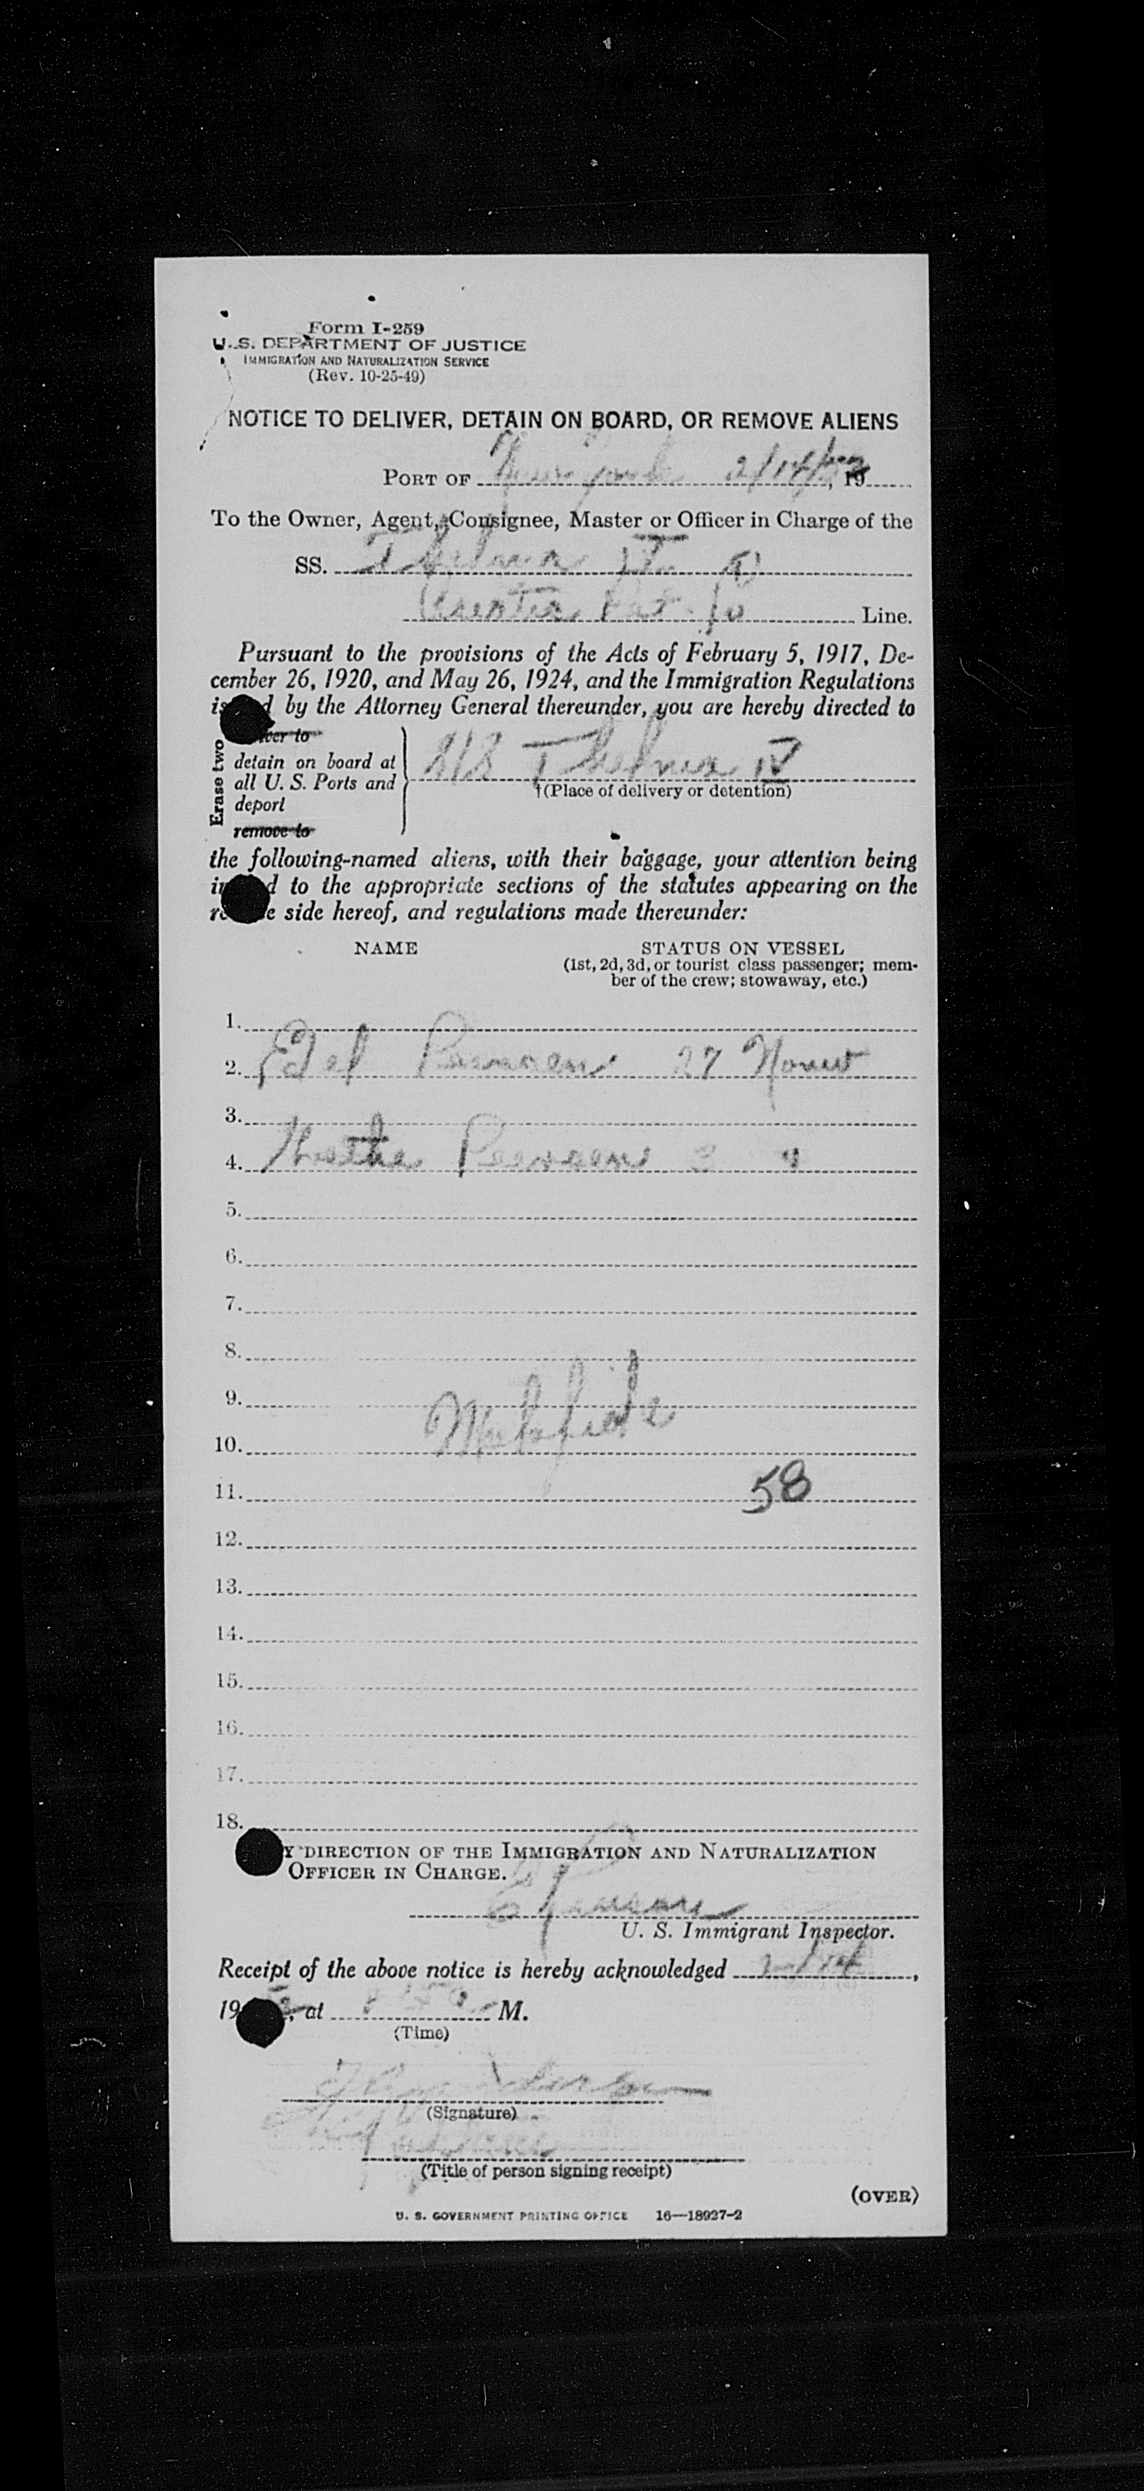 Form I-259
U. S. DEPARTMENT OF JUSTICE
IMMIGRATION AND NATURALIZATION SERVICE
(Rev. 10-25-49)
NOTICE TO DELIVER, DETAIN ON BOARD, OR REMOVE ALIENS
PORT OF New York 2/14/52, 19
To the Owner, Agent, Consignee, Master or Officer in Charge of the
SS. Thelma IV
Line.
Pursuant to the provisions of the Acts of February 5, 1917, De-
cember 26, 1920, and May 26, 1924, and the Immigration Regulations
by the Attorney General thereunder, you are hereby directed to
Erase two
to
detain on board at
all U. S. Ports and
deport
remove to
S/S Thelma IV
†(Place of delivery or detention)
the following-named aliens, with their baggage, your attention being
to the appropriate sections of the statutes appearing on the
side hereof, and regulations made thereunder:
NAME STATUS ON VESSEL
(1st, 2d, 3d, or tourist class passenger; mem-
ber of the crew; stowaway, etc.)
1.
2. Edel 27
3.
4. 3 "
5.
6.
7.
8.
9.
10. Malafide
11. 58
12.
13.
14.
15.
16.
17.
18.
DIRECTION OF THE IMMIGRATION AND NATURALIZATION
OFFICER IN CHARGE.
U. S. Immigrant Inspector.
Receipt of the above notice is hereby acknowledged 2/14,
19 at M.
(Time)
(Signature)
(Title of person signing receipt)
(OVER)
U. S. GOVERNMENT PRINTING OFFICE 16—18927-2